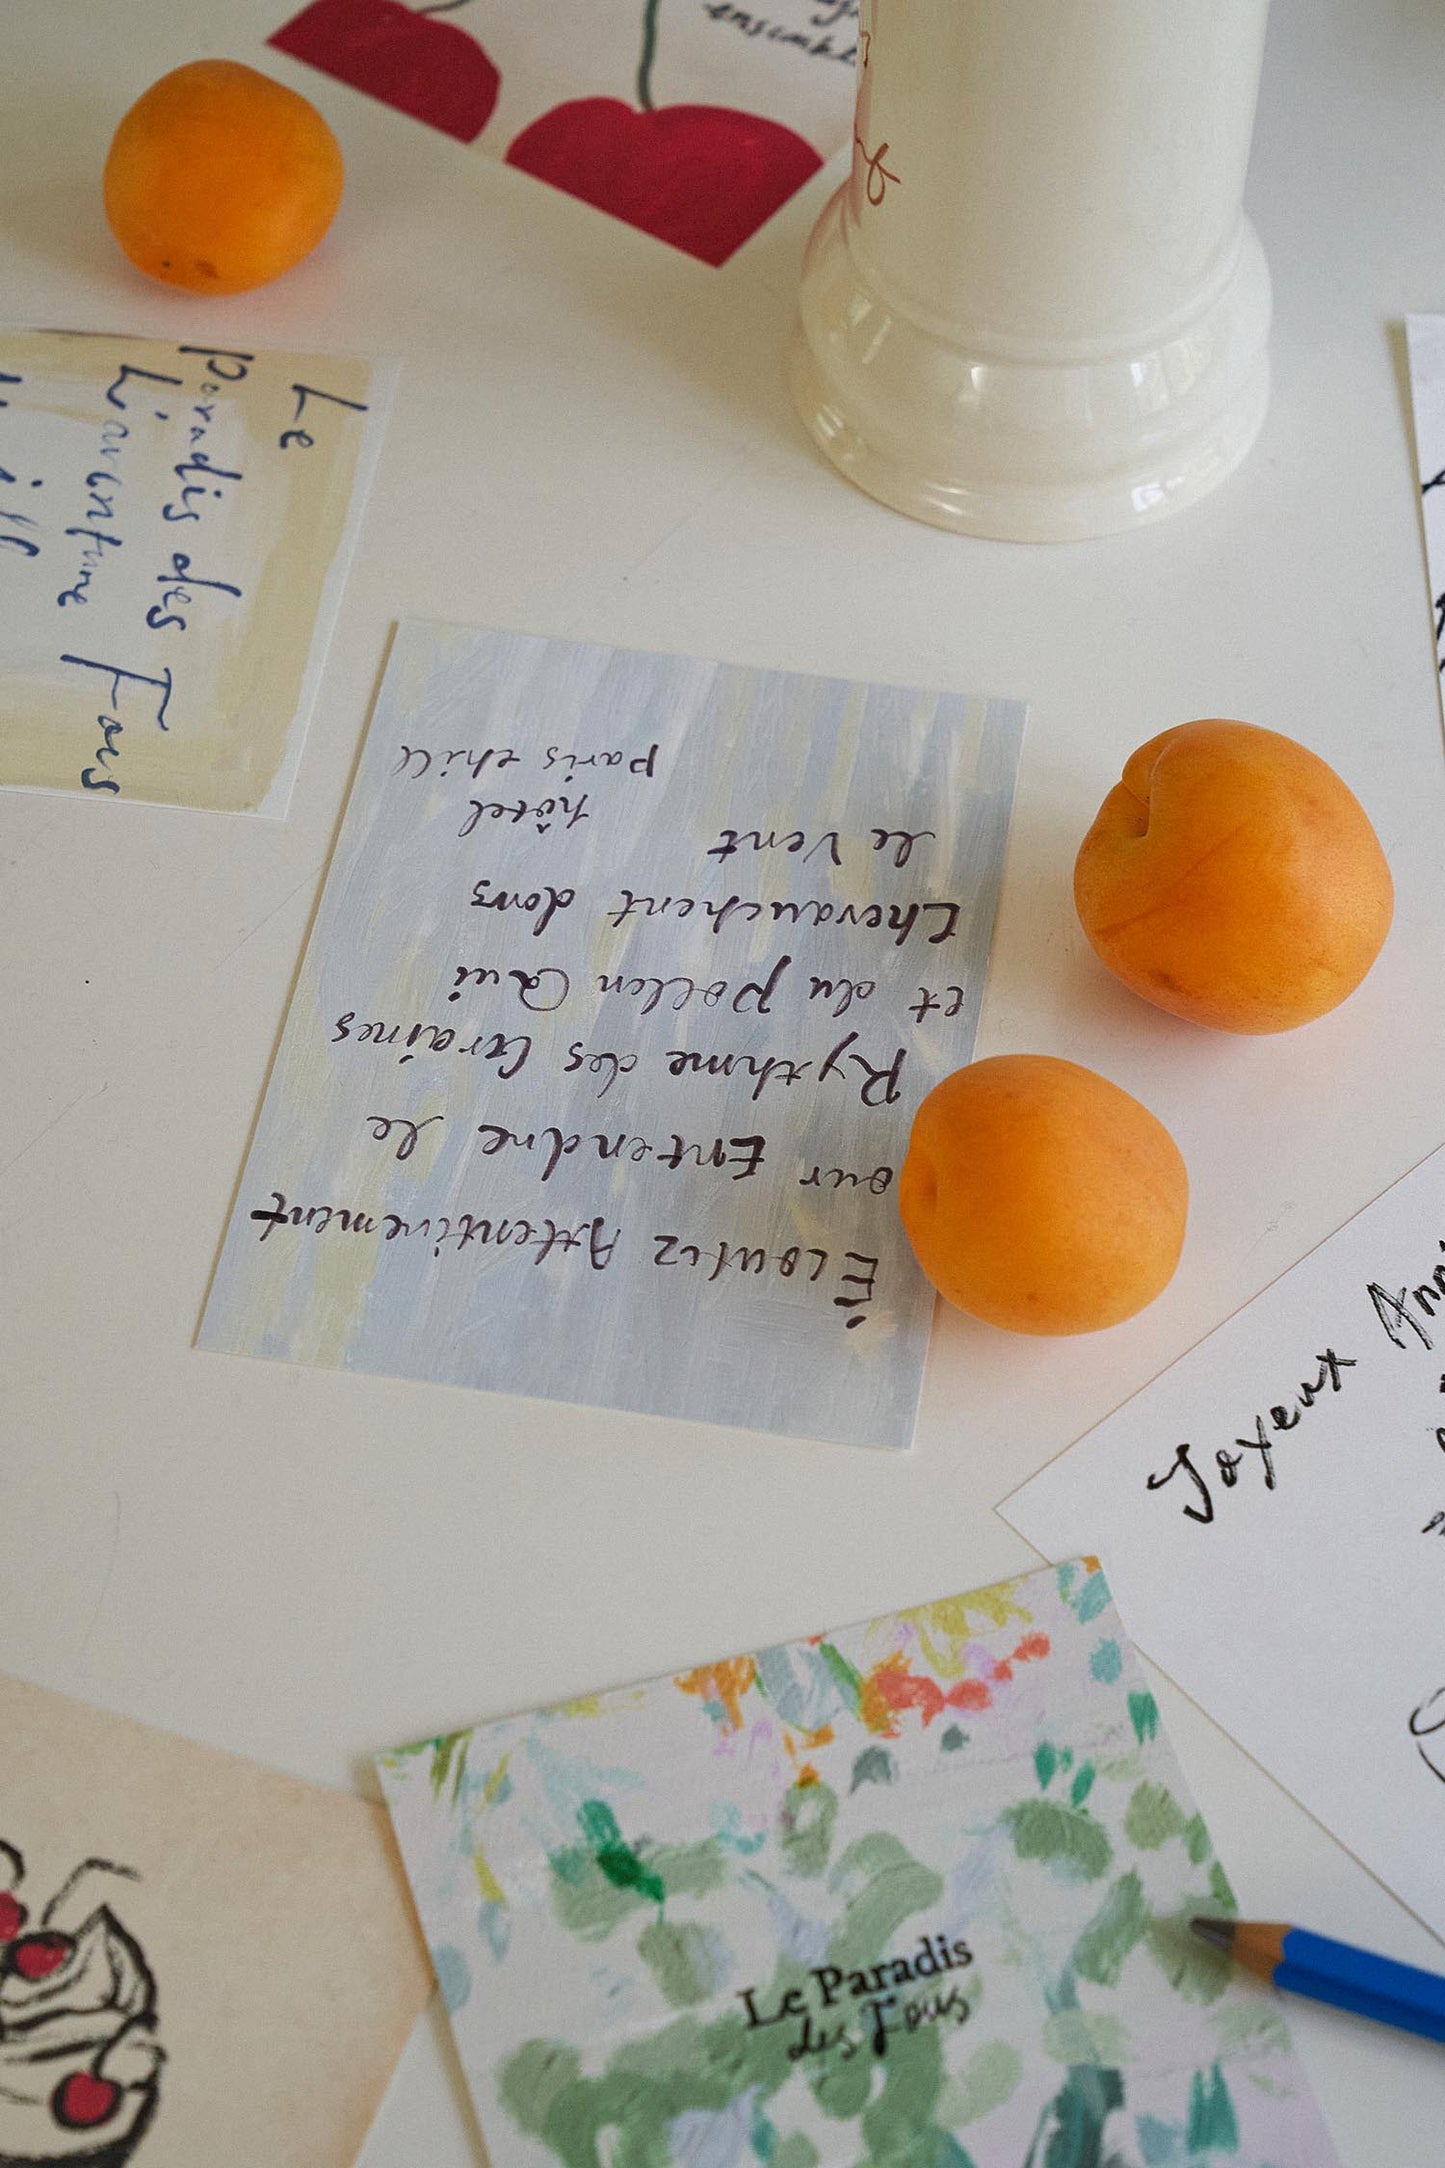 ensemble
Le
Paradis des
L'aventure Fous
Écoutez Attentivement
our Entendre le
Rythme des Graines
et du pollen Qui
Chevauchent dans
le Vent
hôtel
paris chill
Joyeux Anni
Le Paradis
des Fous